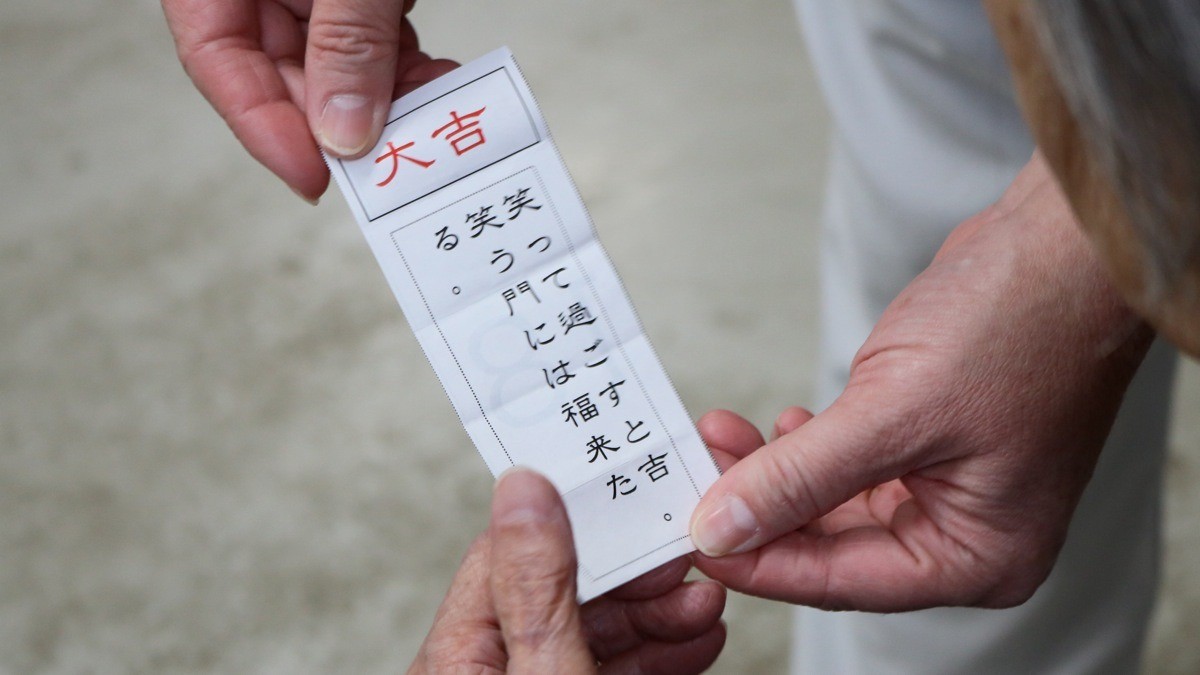 大吉
笑って過ごすと吉。
笑う門には福来た
る。